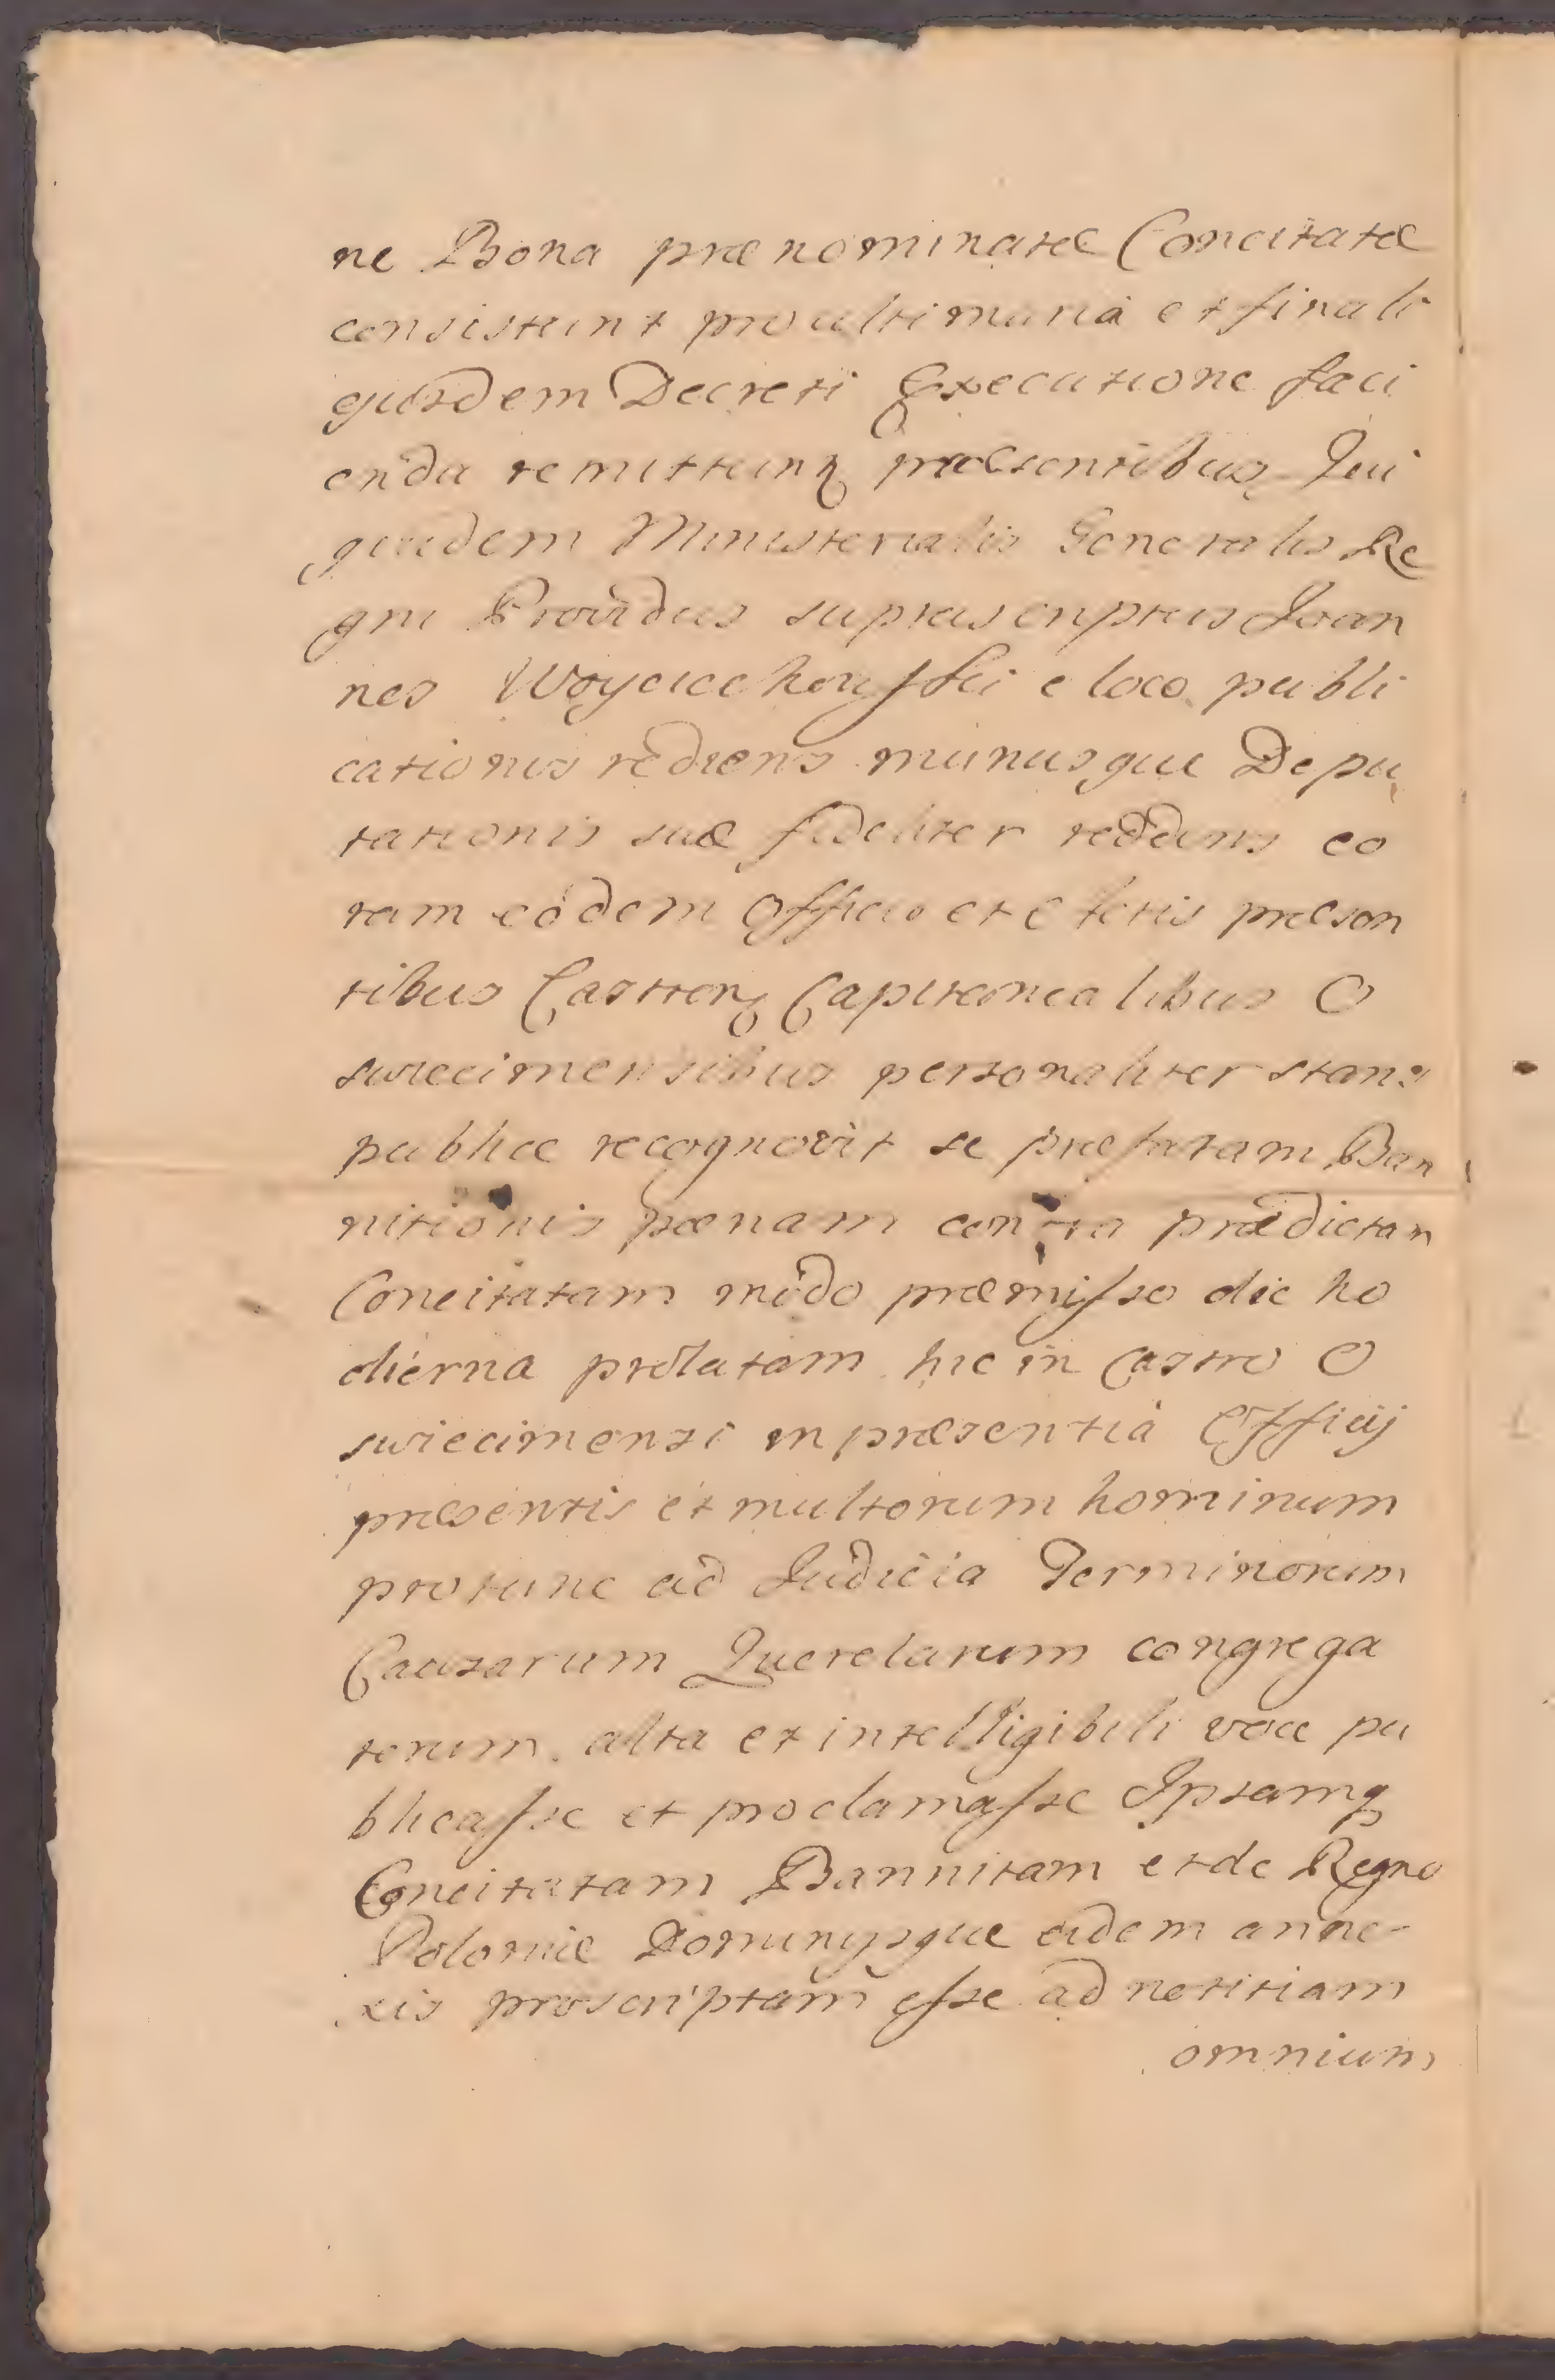 ne Bona prænominatæ Concitatæ
consistunt pro ultimaria et finali
ejusdem Decreti Executione faci
enda remittunq præsentibus Qui
quidem Ministerialis Generalis Re
gni Providus suprascriptus Joan
nes Woyciechowski e loco publi
cationis rediens munusque Depu
tationis suæ fideliter reddens co
ram eodem Officio et Actis præsen
tibus Castren Capitanealibus O
swiecimensibus personaliter stans
publice recognovit se præfatam Ban
nitionis pœnam contra prædictam
Concitatam modo præmisso die ho
dierna prolatam hic in Castro O
swiecimensi in præsentia Officij
præsentis et multorum hominum
protunc ad Judicia Terminorum
Causarum Querelarum congrega
torum alta et intelligibili voce pu
blicasse et proclamasse Ipsamq
Concitatam Bannitam et de Regno
Poloniæ Dominijsque eidem anne-
xis proscriptam esse ad notitiam
omnium